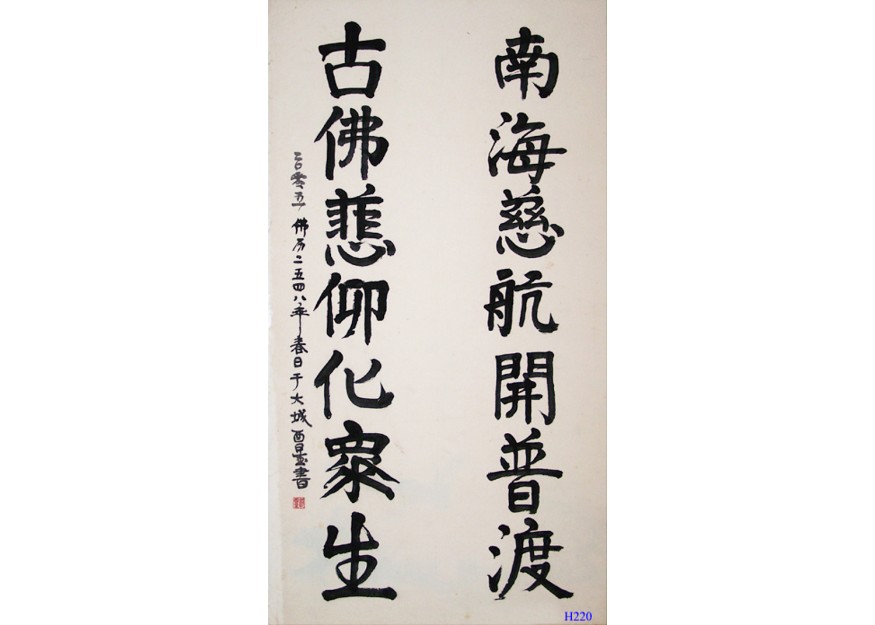 南海慈航開普渡
古佛悲仰化衆生
二〇零五 佛历二五四八年春日于大城 書
H220